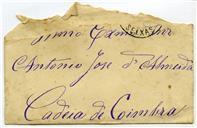 SEIXAS
Antonio José d'Almeida
Cadeia de Coimbra